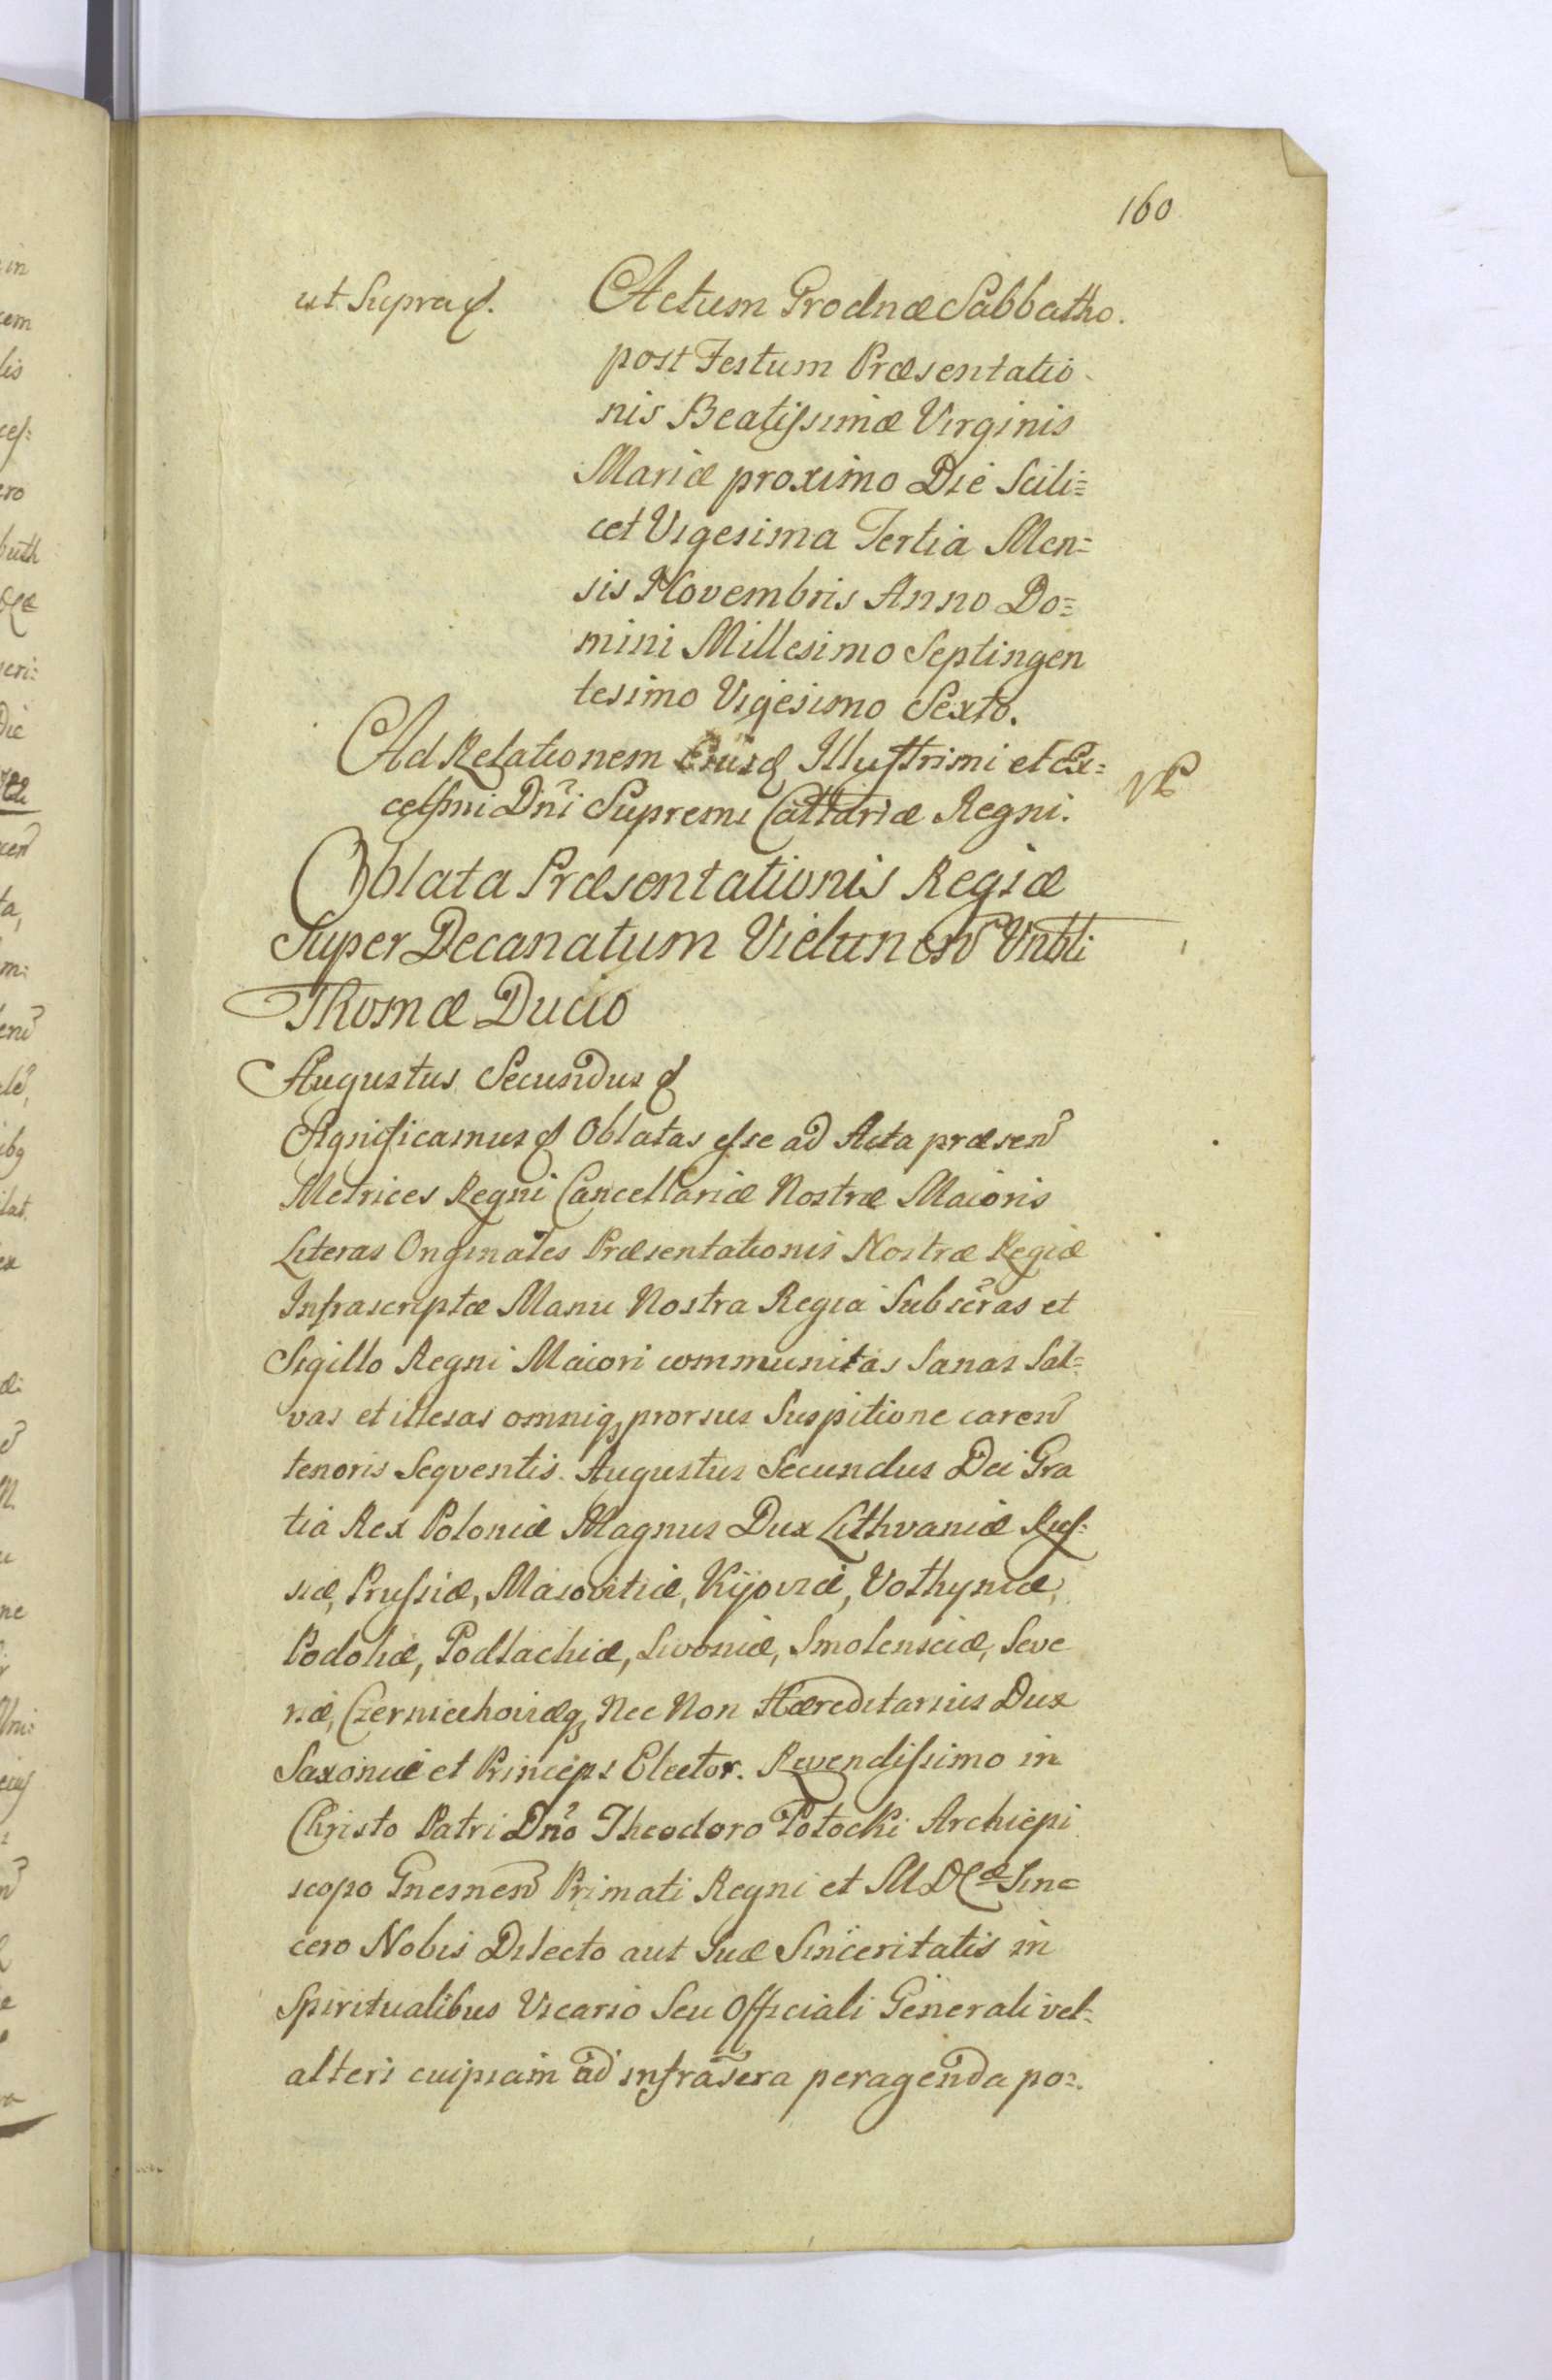 160
ut Supra &.
Actum Grodnæ Sabbatho.
post Festum Præsentatio-
nis Beatissimæ Virginis
Mariæ proximo Die Scili=
cet Vigesima Tertia Men=
sis Novembris Anno Do=
mini Millesimo Septingen
tesimo Vigesimo Sexto.
Ad Relationem Eiusd Illustrimi et Ex=
cellmi Dni Supremi Cattariæ Regni.
Oblata Præsentationis Regiæ
Super Decanatum Vielunen Vnbli
Thomæ Ducio
Augustus Secundus &
Significamus & Oblatas esse ad Acta præsen
Metrices Regni Cancellariæ Nostræ Maioris
Literas Originales Præsentationis Nostræ Regiæ
Infrascriptæ Manu Nostra Regia Subscras et
Sigillo Regni Maiori communitas Sanas Sal=
vas et illesas omniq prorsus Suspitione caren
tenoris Seqventis. Augustus Secundus Dei Gra
tia Rex Poloniæ Magnus Dux Lithvaniæ Rus=
siæ, Prussiæ, Masovitiæ, Kijoviæ, Volhyniæ,
Podoliæ, Podlachiæ, Livoniæ, Smolensciæ, Seve
riæ, Czerniechoviæq, Nec Non Hæreditarius Dux
Saxoniæ et Princeps Elector. Revendissimo in
Christo Patri Dno Theodoro Potocki Archiepi
scopo Gnesnen Primati Regni et M D Læ Sin=
cero Nobis Dilecto aut Suæ Sinceritatis in
Spiritualibus Vicario Seu Officiali Generali vel=
alteri cuipiam ad infrascra peragenda po=